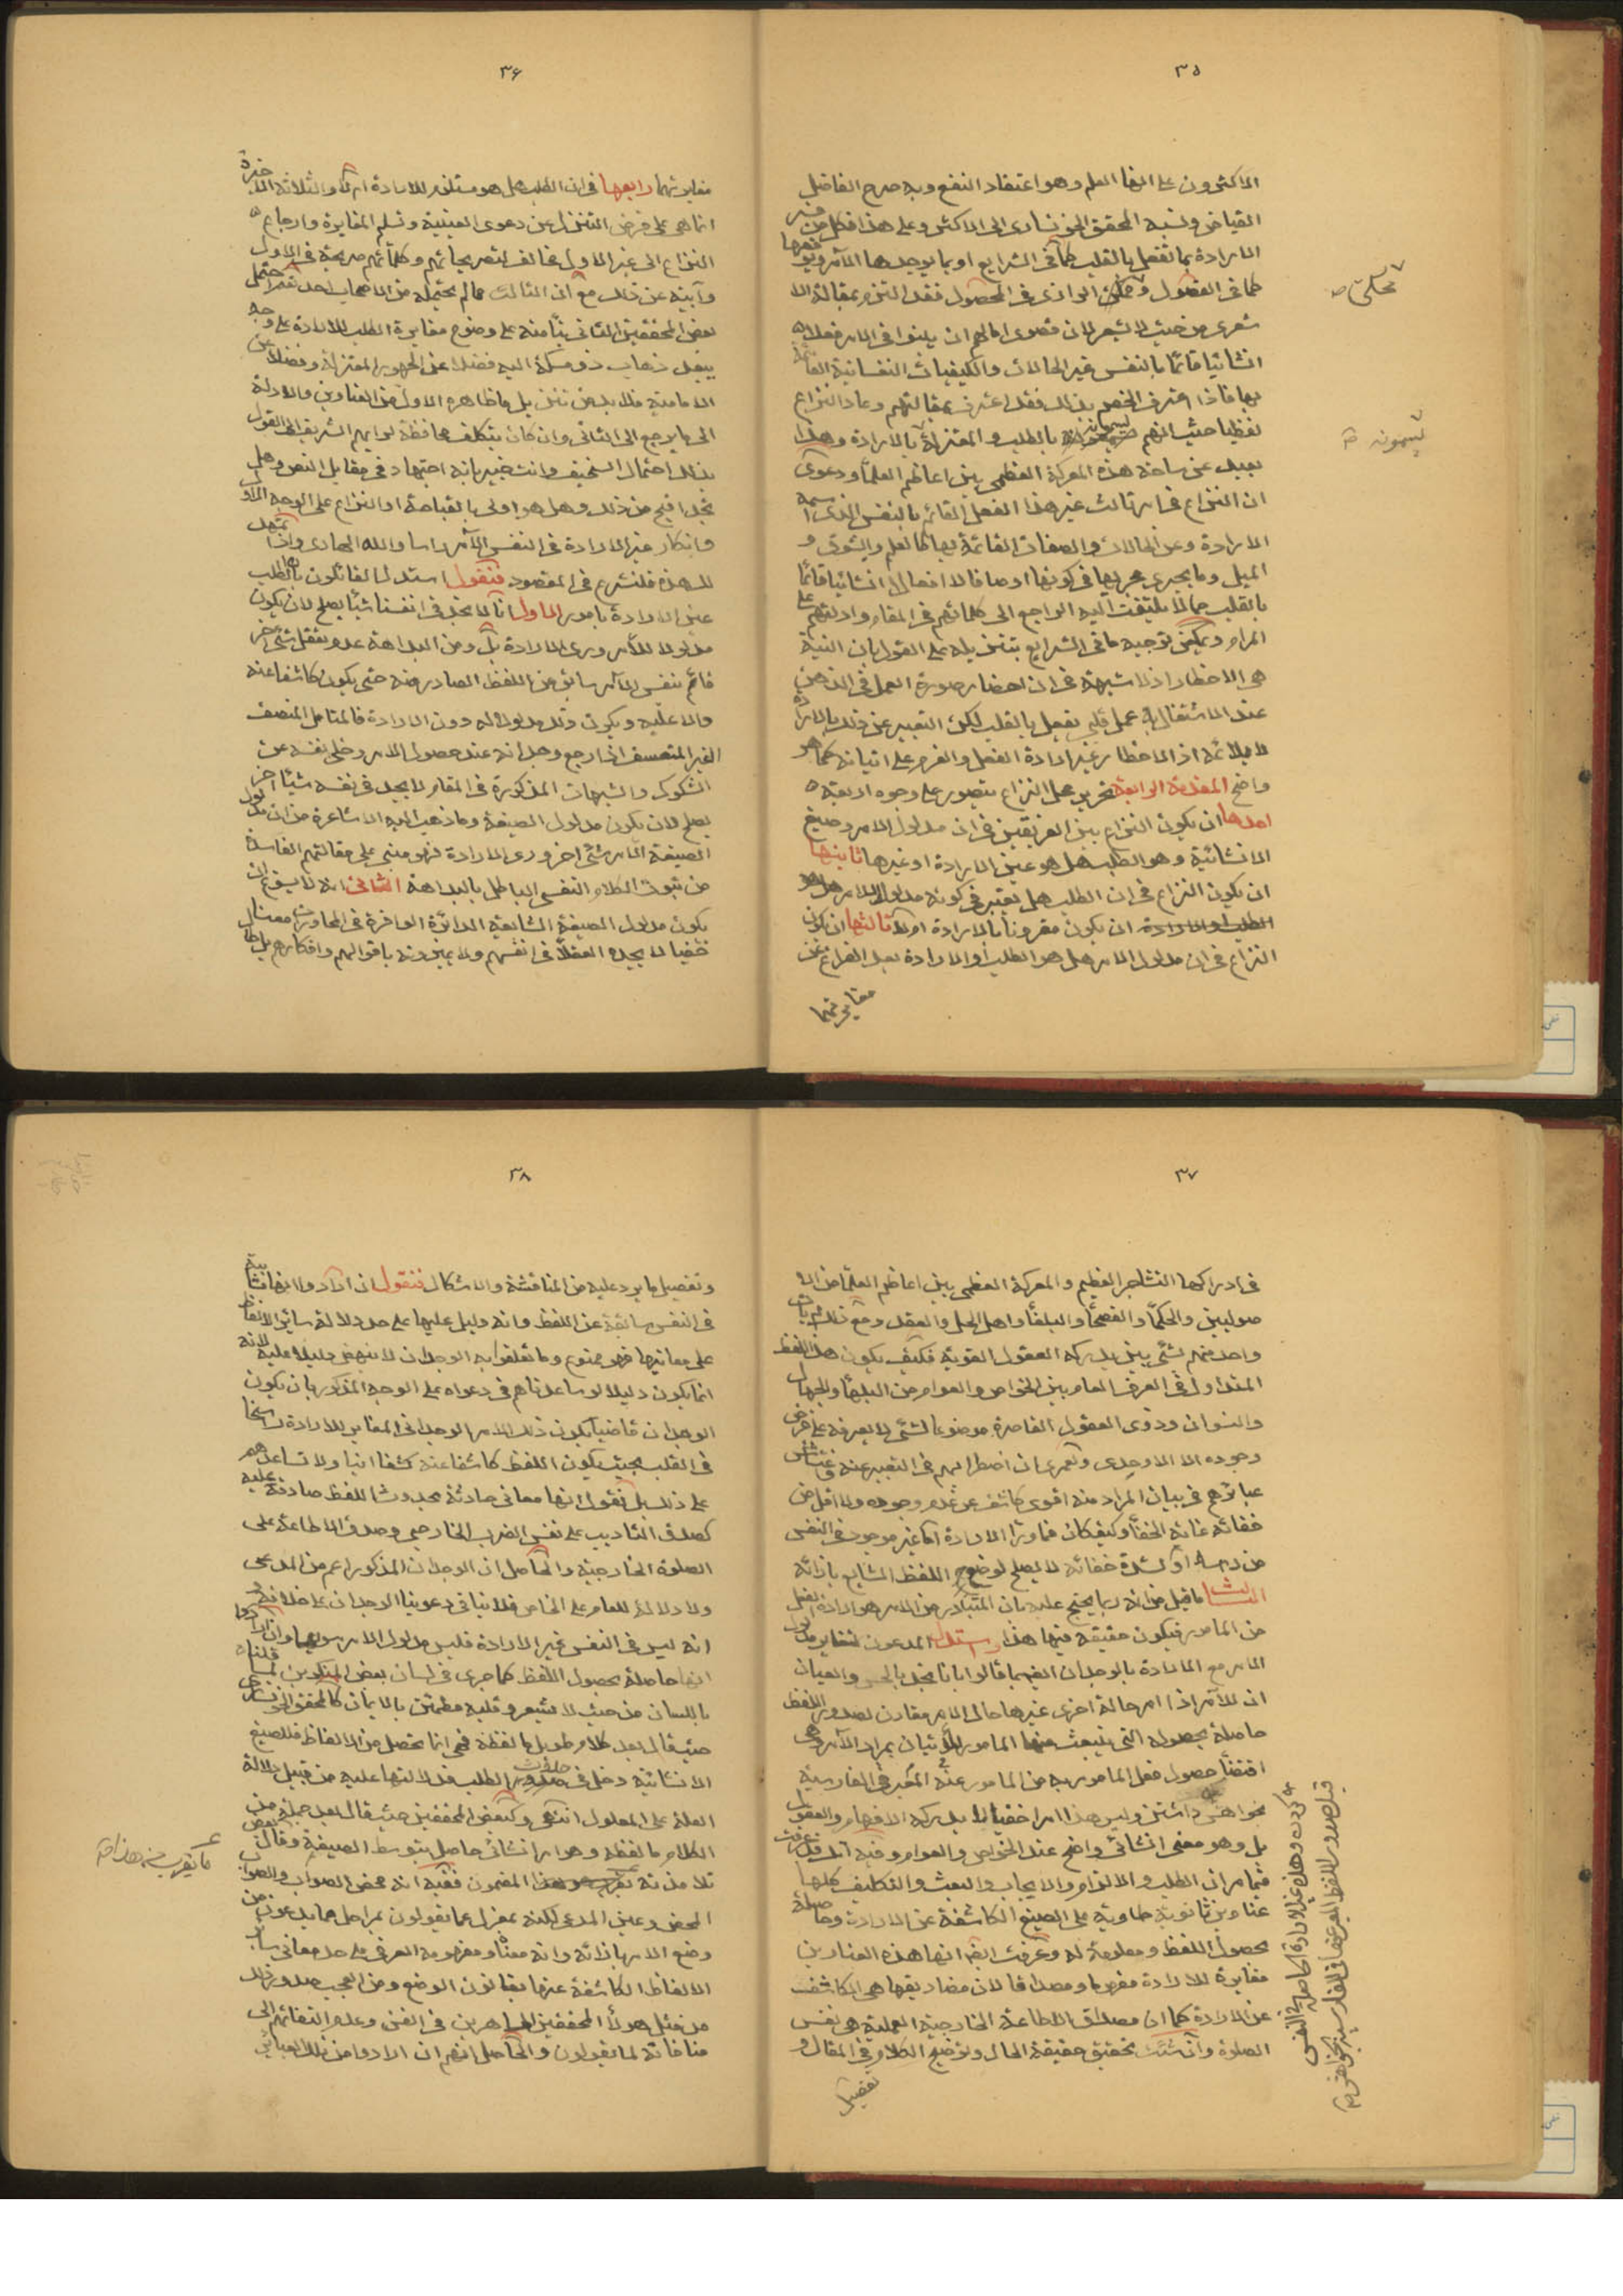 ٣٥
الاكثرون على انها العلم وهو اعتقاد النفع وبه صرح الفاضل
القياض ونسبه المحقق الخونسارى الى الاكثر وعلى هذا فكل من فسر
الارادة بما تفعل بالقلب كما فى الشرايع او بما يوجدها الآمر ويوقعها
كما فى الفصول و الرازى فى المحصول فقد التزم بمقالة الا
شعرى من حيث لا يشعر لان قصوى امالهم ان يثبتوا فى الامر فعلا
انشائيا قائما بالنفس غير الحالات والكيفيات النفسانية القائمة
بها فاذا اعترف الخصم بذلك فقد اعترف بمقالتهم وعاد النزاع
لفظيا حيث انهم يسمونه بالطلب و المعتزلة بالارادة وهذا
بعيد عن ساحة هذه المعركة العظمى بين اعاظم العلماء ودعوى
ان النزاع فى امر ثالث غير هذا الفعل القائم بالنفس الذى اسمه
الارادة وعن الحالات والصفات القائمة بها كالعلم والشوق و
الميل وما يجرى مجريها فى كونها اوصافا لا افعالا انشائيا قائما
بالقلب مما لا يلتفت اليه الراجع الى كلماتهم فى المقام وادلتهم على
المرام ويمكن توجيه ما فى الشرايع بتنزيله على القول بان النية
هى الاخطار اذ لا شبهة فى ان احضار صورة العمل فى الذهن
عند الاشتغال به عمل قلبى يفعل بالقلب لكن التعبير عن ذلك بالارادة
لا يلائمه اذ الاخطار غير ارادة الفعل والعزم على اتيانه كما هو
واضح المقدمة الرابعة تحرير محل النزاع يتصور على وجوه اربعة
احدها ان يكون النزاع بين الفريقين فى ان مدلول الامر وصيغ
الانشائية وهو الطلب هل هو عين الارادة او غيرها ثانيها
ان يكون النزاع فى ان الطلب هل يعتبر فى كونه مدلولا للامر هل هو
الطلب او الارادة ان يكون مقرونا بالارادة ام لا ثالثها ان يكون
النزاع فى ان مدلول الامر هل هو الطلب او الارادة بعد الفراغ عن
مغايرتهما
يسمونه
٣۶
مغايرتهما رابعها فى ان الطلب هل هو مستلزم للارادة ام لا والثلاثة الاخيرة
انما هى على فرض التنزل عن دعوى العينية وتسلم المغايرة وارجاع
النزاع الى غير الاول مخالف لتصريحاتهم وكلماتهم صريحة فى الاول
وآبية عن ذلك مع ان الثالث مما لم يحتمله من الاصحاب احد نعم احتمل
بعض المحققين الثانى بناء منه على وضوح مغايرة الطلب للارادة على وجه
يبعد ذهاب ذو مسكة اليه فضلا عن الجمهور المعتزلة وفضلا عن
الامامية فلا بد من تنزيل ما ظاهره الاول من العناوين والادلة
الى ما يرجع الى الثانى وان كان بتكلف محافظة لمرامهم الشريف الى القول
بذلك احتمال السخيف وانت خبير بانه اجتهاد فى مقابل النص وهل
تجد اقبح من ذلك وهل هو اولى بالقباحة او النزاع على الوجه الاول
وانكار غير الارادة فى النفس الآمر راسا والله الهادى واذا تمهد
لك هذه فلنشرع فى المقصود فنقول استدل القائلون بان الطلب
عين الارادة بامور الاول انا لا نجد فى انفسنا شيئا يصلح لان يكون
مدلولا للامر ورى الارادة بل ومن البداهة عدم تعقل شئ آخر
قائم بنفس الآمر سابق من اللفظ الصادر منه حتى يكون كاشفا عنه
والا عليه ويكون ذلك مدلولا له دون الارادة فالمتامل المنصف
الغير المتعسف اذا رجع وجدانه عند حصول الامر وخلى نفسه عن
الشكوك والشبهات المذكورة فى المقام لا يجد فى نفسه شيئا آخر
يصلح لان يكون مدلول الصيغة وما ذهب اليه الاشاعرة من ان مدلول
الصيغة الامر شئ اخر ورى الارادة فهو مبنى على مقالتهم الفاسدة
من ثبوت الكلام النفسى الباطل بالبداهة الثانى انه لا يسوغ ان
يكون مدلول الصيغة الشايعة الدائرة الوافرة فى المحاورات معنا
خفيا لا يجده العقلاء فى انفسهم ولا يميزونه باقوالهم وافكارهم بل طال
٣٧
فى ادراكها التشاجر العظيم والمعركة العظمى بين اعاظم العلماء من الا
صوليين والحكماء والفصحاء والبلغاء واهل الحل والعقد ومع ذلك لم يات
واحد منهم بشئ بين يدركه العقول القوية فكيف يكون هذا اللفظ
المتداول فى العرف العام بين الخواص والعوام من البلهاء والجهال
والنسوان وذوى العقول القاصرة موضوعا لشئ لا يعرفه على فرض
وجوده الا الاوحدى ولعمرى ان اضطرابهم فى التعبير عنه وتشتت
عباراتهم فى بيان المراد منه اقوى كاشف عن عدم وجوده ولا اقل من
خفائه غاية الخفاء وكيف كان فماورا الارادة اما غير موجود فى النفس
من راسه او لشدة خفائه لا يصلح لوضع اللفظ الشايع بازائه
الثالث ما قيل من انه ربما يحتج عليه بان المتبادر من الامر هو ارادة الفعل
من المامور فيكون حقيقة فيها هذا واستدل المدعون لتغاير مدلول
الامر مع الارادة بالوجدان ايضا فقالوا بانا نجد بالحس والعيان
ان للآمر اذا امر حالة اخرى غيرها حال الامر مقارن لصدور اللفظ
حاصلة بحصوله التى ينبعث منها المامور للاتيان بمراد الآمر وهى
اقتضاء حصول فعل المامور به من المامور عنه المعبر فى الفارسية
بخواهش داشتن وليس هذا امرا خفيا لا يدركه الافهام والعقول
بل وهو معنى انشائى واضح عند الخواص والعوام وفيه انك قد عرفت
فيما مر ان الطلب و الالزام والايجاب والبعث والتكليف كلها
عناوين ثانوية طارية على الصيغ الكاشفة عن الارادة وحاصلة
بحصول اللفظ ومعلومة له وعرفت ايضا انها هذه العناوين
مغايرة للارادة مفهوما ومصداقا لان مصاديقها هى الكاشفة
عن الارادة كما ان مصداق الاطاعة الخارجية العملية هى نفس
الصلوة وان شئت تحقيق حقيقة الحال وتوضيح الكلام فى المقال و
تفصيل
٣٨
وتفصيل ما يرد عليه من المناقشة والاشكال فنقول ان ارادوا انها ثابتة
فى النفس سابقة عن اللفظ وانه دليل عليها على حد دلالة سائر الالفاظ
على معانيها فهو ممنوع وما تعلقوا به الوجدان لا ينهض دليلا عليه لانه
انما يكون دليلا لو ساعدناهم فى دعواه على الوجه المذكور بان يكون
الوجدان قاضيا بكون ذلك الامر الوجدانى المغاير للارادة راسخا
فى القلب بحيث يكون اللفظ كاشفا عنه كشفا انيا ولا تساعدهم
على ذلك بل نقول انها معانى حادثة بحدوث اللفظ صادقة عليه
كصدق التاديب على نفس الضرب الخارجى وصدق الاطاعة على
الصلوة الخارجية والحاصل ان الوجدان المذكور اعم من المدعى
ولا دلالة للعام على الخاص فلا ينافى دعوينا الوجدان على خلافه
انه ليس فى النفس غير الارادة فليس مدلول الامر سويها وان ارادوا
انها حاصلة بحصول اللفظ كما جرى فى لسان بعض المنكرين لما قلناه
باللسان من حيث لا يشعر وقلبه مطمئن بالايمان كالمحقق الخونسارى
حيث قال بعد كلام طويل ما لفظه فهى انما تحصل من الالفاظ فللصيغ
الانشائية دخل فى حدوث الطلب فدلالتها عليه من قبيل دلالة
العلة على المعلول انتهى وكبعض المحققين حيث قال بعد جملة من
الكلام ما لفظه وهو امر انشائى حاصل بتوسط الصيغة وقال بعض
تلامذته ما يقرب من هذا المضمون ففيه انه محض الصواب والصواب
المحض وعين المدعى لكنه بمعزل عما يقولون بمراحل عما يدعون من
وضع الامر بازائه وانه معناه ومفهومه العرفى على حد معانى ساير
الالفاظ الكاشفة عنها بقانون الوضع ومن العجب صدور ذلك
من مثل هولاء المحققين الماهرين فى الفن وعدم التفاتهم الى
منافاته لما يقولون والحاصل انهم ان ارادوا من ذلك العبائر
ما يقرب من هذا